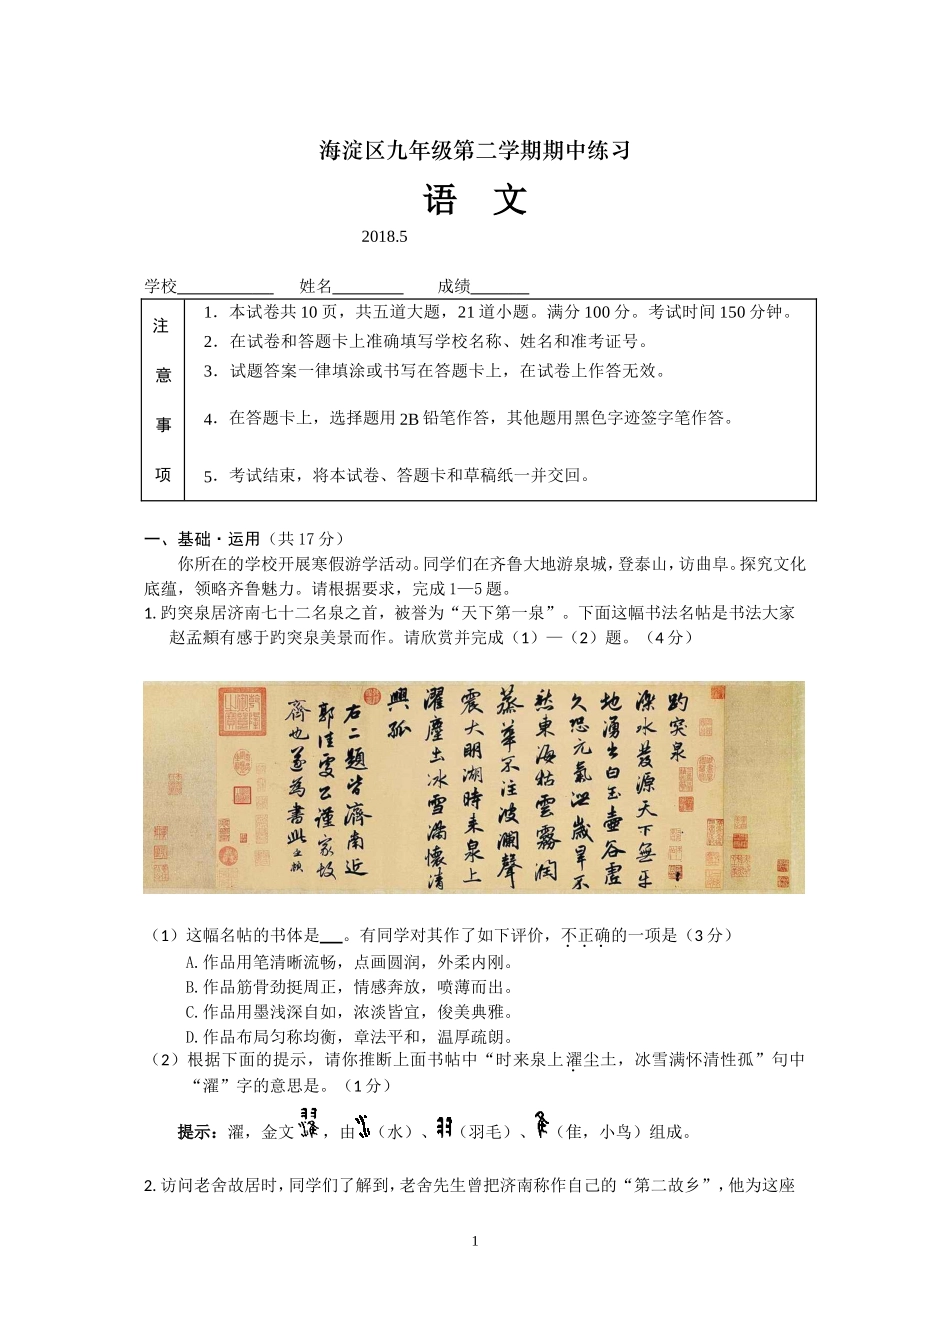 海淀区九年级第二学期期中练习
语 文
2018.5
学校 姓名 成绩
注意事项
1．本试卷共 10 页，共五道大题，21 道小题。满分 100 分。考试时间 150 分钟。
2．在试卷和答题卡上准确填写学校名称、姓名和准考证号。
3．试题答案一律填涂或书写在答题卡上，在试卷上作答无效。
4．在答题卡上，选择题用 2B 铅笔作答，其他题用黑色字迹签字笔作答。
5．考试结束，将本试卷、答题卡和草稿纸一并交回。
一、基础·运用（共 17 分）
你所在的学校开展寒假游学活动。同学们在齐鲁大地游泉城，登泰山，访曲阜。探究文化
底蕴，领略齐鲁魅力。请根据要求，完成 1—5 题。
1. 趵突泉居济南七十二名泉之首，被誉为“天下第一泉”。下面这幅书法名帖是书法大家
赵孟頫有感于趵突泉美景而作。请欣赏并完成（1）—（2）题。（4 分）
趵突泉
濼水發源天下無平
地湧出白玉壷谷虚
久恐元氣泄歳旱不
愁東海枯雲霧潤
蒸華不注波瀾聲
震大明湖時来泉上
濯塵土冰雪滿懷清
興孤
右二題皆濟南近
郭佳處公謹家故
齊也遂為書此孟頫
（1）这幅名帖的书体是 。有同学对其作了如下评价，不正确的一项是（3 分）
A.作品用笔清晰流畅，点画圆润，外柔内刚。
B.作品筋骨劲挺周正，情感奔放，喷薄而出。
C.作品用墨浅深自如，浓淡皆宜，俊美典雅。
D.作品布局匀称均衡，章法平和，温厚疏朗。
（2）根据下面的提示，请你推断上面书帖中“时来泉上濯尘土，冰雪满怀清性孤”句中
“濯”字的意思是。（1 分）
提示：濯，金文 ，由 （水）、 （羽毛）、 （隹，小鸟）组成。
2. 访问老舍故居时，同学们了解到，老舍先生曾把济南称作自己的“第二故乡”，他为这座
1